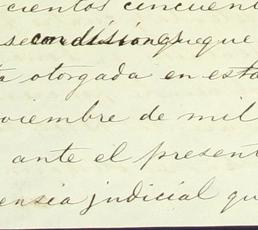 cientos cincuent
se condisiongueque
ta otorgada en esta
oviembre de mil
ante el present
ensia judicial qu